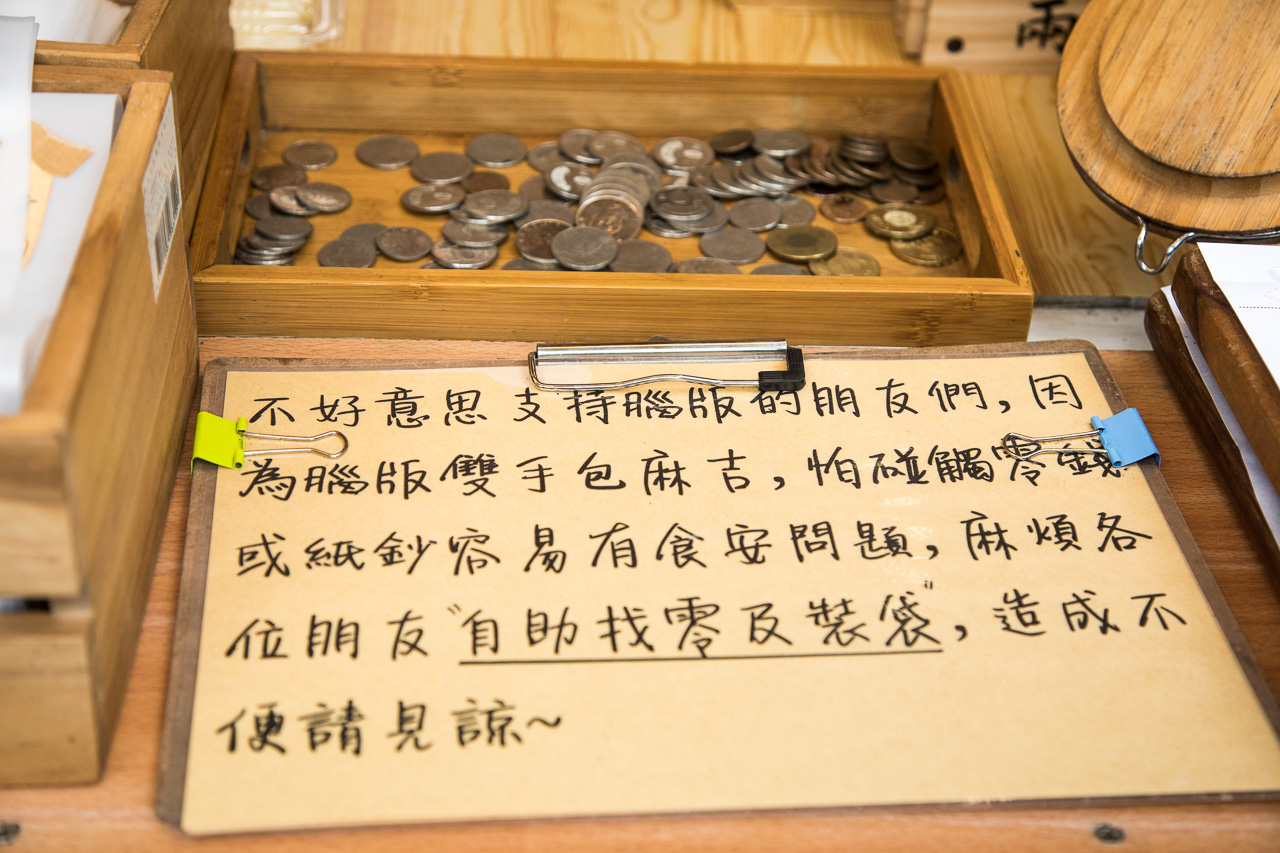 雨
不好意思支持腦版的朋友們，因
為腦版雙手包麻吉，怕碰觸零錢
或紙鈔容易有食安問題，麻煩各
位朋友"自助找零及裝袋"，造成不
便請見諒~